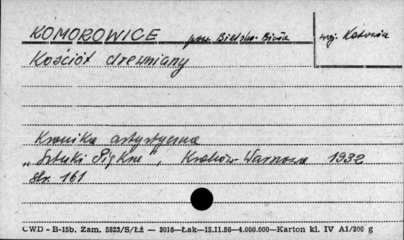 KOMOROWICE pow. Bielsko-Biała woj. Katowice
Kościół drewniany
Kronika artystyczna
„Sztuki Piękne", Kraków-Warszawa 1932
str. 161
CWD - B-15b. Zam. 5823/S/Łż — 3016—Łak—15.11.56—4.000.000—Karton kl. IV A1/200 g